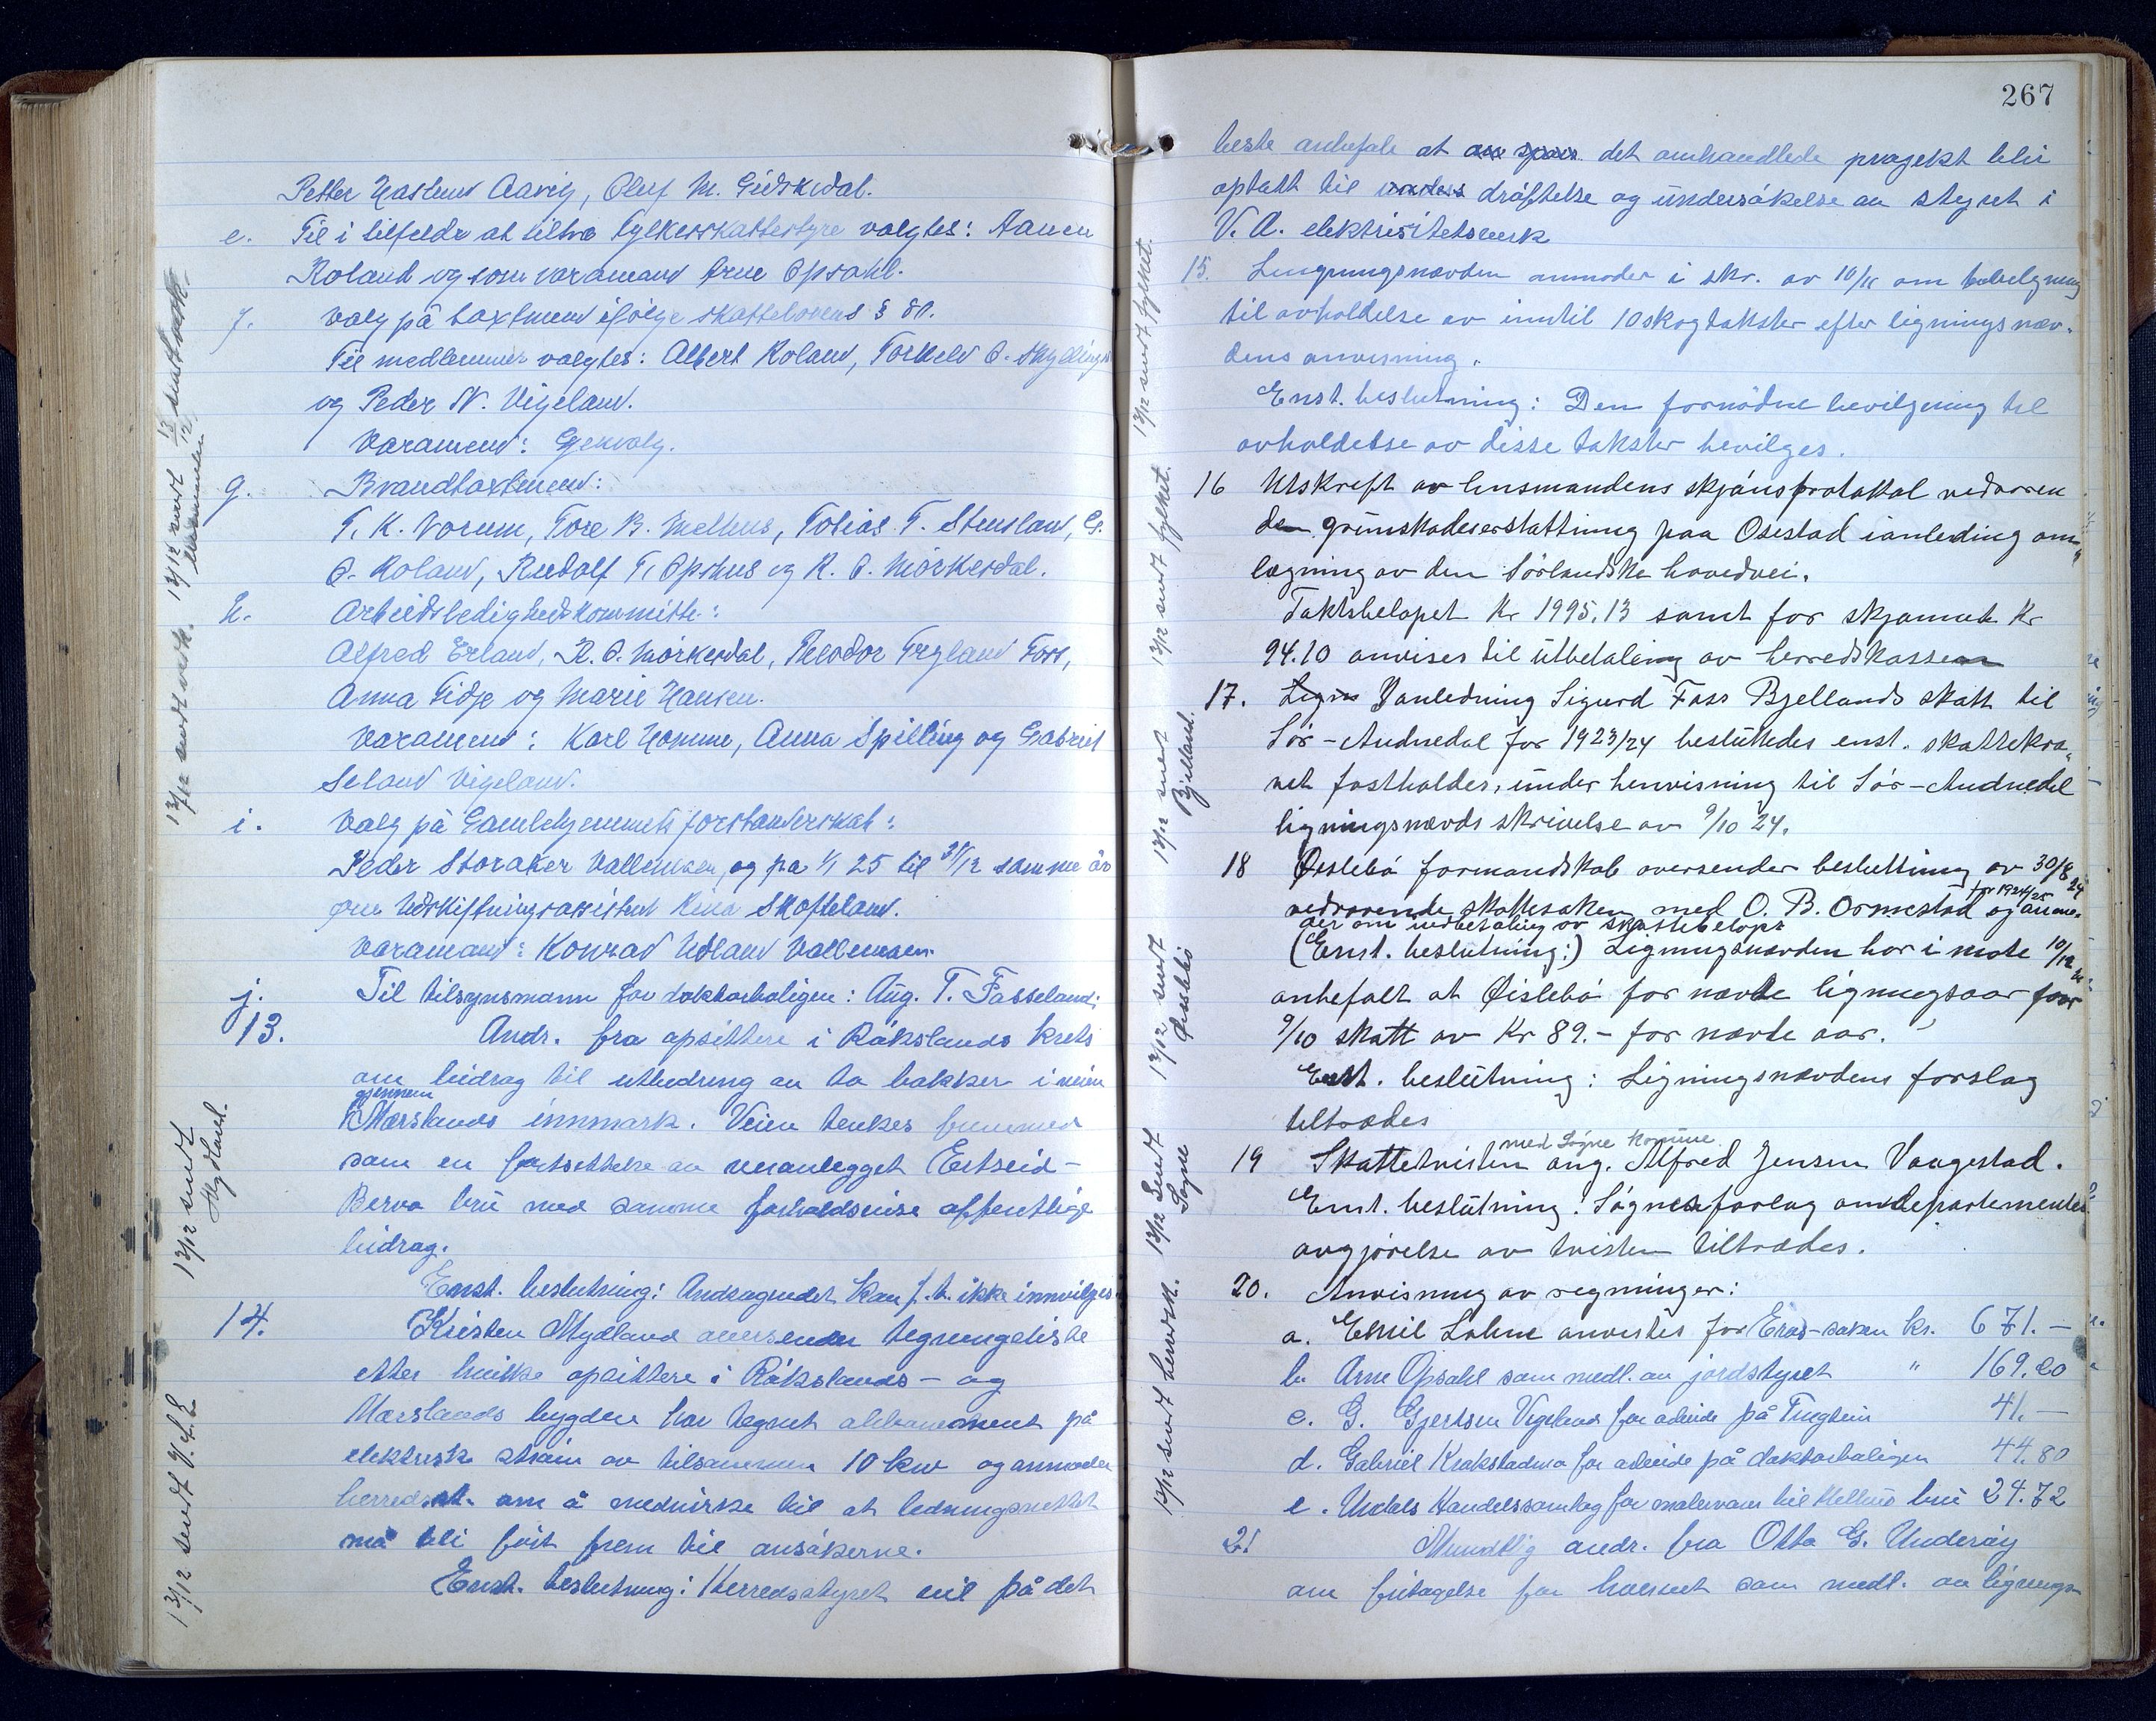 Petter Aavig, Oluf M. Eidskedal.
e. Til i tilfelde at tiltre fylkesskattestyre valgtes: Aanen
Roland og som varamand Arne Opsahl.
f. Valg på taxtmend ifölge skattelovens § 80.
Til medlemmer valgtes: Albert Roland, Torkeld O.
og Peder N. Vigeland.
Varamend: Gjenvalg.
g. Brandtaxtmend:
T. K. Vorum, Tore B. Melhus, Tobias T. Stensland, G.
O. Roland, Rudolf T. Opshus og R. O. Mörkesdal.
h. Arbeidsledighedskommitte:
Alfred Erland, R. O. Mörkesdal, Teodor Trygland Foss,
Anna Tidje og Marie Hansen.
Varamend: Karl Homme, Anna Spilling og Gabriel
Seland Vigeland.
i. Valg på Gamlehjemmets forstanderskab:
Peder Storaker Vallemoen, og fra 1/1 25 til 31/12 samme år
fru Udskiftningsassistent Skofteland.
Varamand: Konrad Udland Vallemoen.
j. Til tilsynsmann for doktorboligen: Aug. T. Fasseland.
13. Andr. fra opsittere i Råkslands krets
om bidrag til utbedring av to bakker i veien
gjennem
Mærslands innmark. Veien tenkes fremmed
som en fortsettelse av veianlegget Eitseid-
Berva bru med samme forholdsvise offentlige
bidrag.
Enst. beslutning: Andragendet kan f. t. ikke innvilges.
14. Kristen Mydland oversender tegningsliste
etter hvilke opsittere i Råkslands- og
Mærslands bygden har tegnet abbonoment på
elektrisk strøm av tilsammen 10 kw og anmoder
herredsst. om å medvirke til at ledningsnettet
må bli ført frem til ansökerne.
Enst. beslutning: Herredsstyret vil på det
13/12 sendt 13/12 mottatt
lensmanden
13/12 sendt vedk.
13/12 sendt
Mydland.
13/12 sendt V.A.E
267
beste anbefale at det omhandlede prosjekt blir
optatt til dröftelse og undersökelse av styret i
V. A. elektrisitetsverk
15. Ligningsnævnden anmoder i skr. av 10/11 om bevilgning
til avholdelse av inntil 10 skogtakster efter ligningsnæv-
dens anvisning.
Enst. beslutning: Den fornödne bevilgning til
avholdelse av disse takster bevilges.
16 Utskrift av lensmandens skjönsprotokol vedrören
de grunskadeserstattning paa Osestad i anleding om-
lægning av den Sörlandske hovedvei.
Takstbelöpet Kr 1995.13 samt for skjönnet Kr
94.10 anvises til utbetaling av herredskassen
17. I anledning Sigurd Foss Bjellands skatt til
Sör-Audnedal for 1923/24 besluttedes enst. skattekra-
vet fastholdes, under henvisning til Sör-Audnedal
ligningsnævds skrivelse av 9/10 24.
18 Øislebö formandskab oversender beslutning av 30/8 24
for 1924/25
vedrörende skattesaken med O. B. Ormestad og anmo-
der om indbetaling av skattebelöpet
(Enst. beslutning:) Ligningsnævnden har i möte 10/12
anbefalt at Øislebö for nævte ligningsaar faar
9/10 skatt av Kr 89.- for nævte aar.
Enst. beslutning: Ligningsnævdens forslag
tiltrædes
med Søgne komune
19 Skattetvisten ang. Alfred Jensen Vaagestad.
Enst. beslutning: Sögnes forslag om departementes
avgjörelse av tvisten tiltrædes.
20. Anvisning av regninger:
a. Emil Lohne anvistes for -saken kr. 671.—
b. Arne Opsahl som medl. av jordstyret " 169.20
c. G. Gjertsen Vigeland for arbeide på Tinghein 41.—
d. Gabriel Krakstadmo for arbeide på doktorboligen 44.80
e. Undals Handelssamlag for malervarer til Melhus bru 24.72
21 Mundtlig andr. fra Otto G. Underöy
om fritagelse for hvervet som medl. av lignings-
13/12 sendt fylket.
13/12 sendt fylket.
13/12 sendt
Bjelland.
13/12 sendt
Øislebö
13/12 Sendt
Søgne
13/12 sendt herredsk.